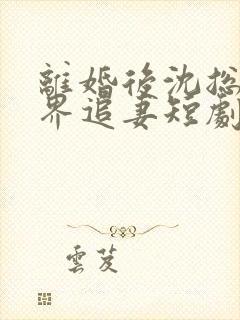 離婚後沈总
界追妻短劇
雲芨